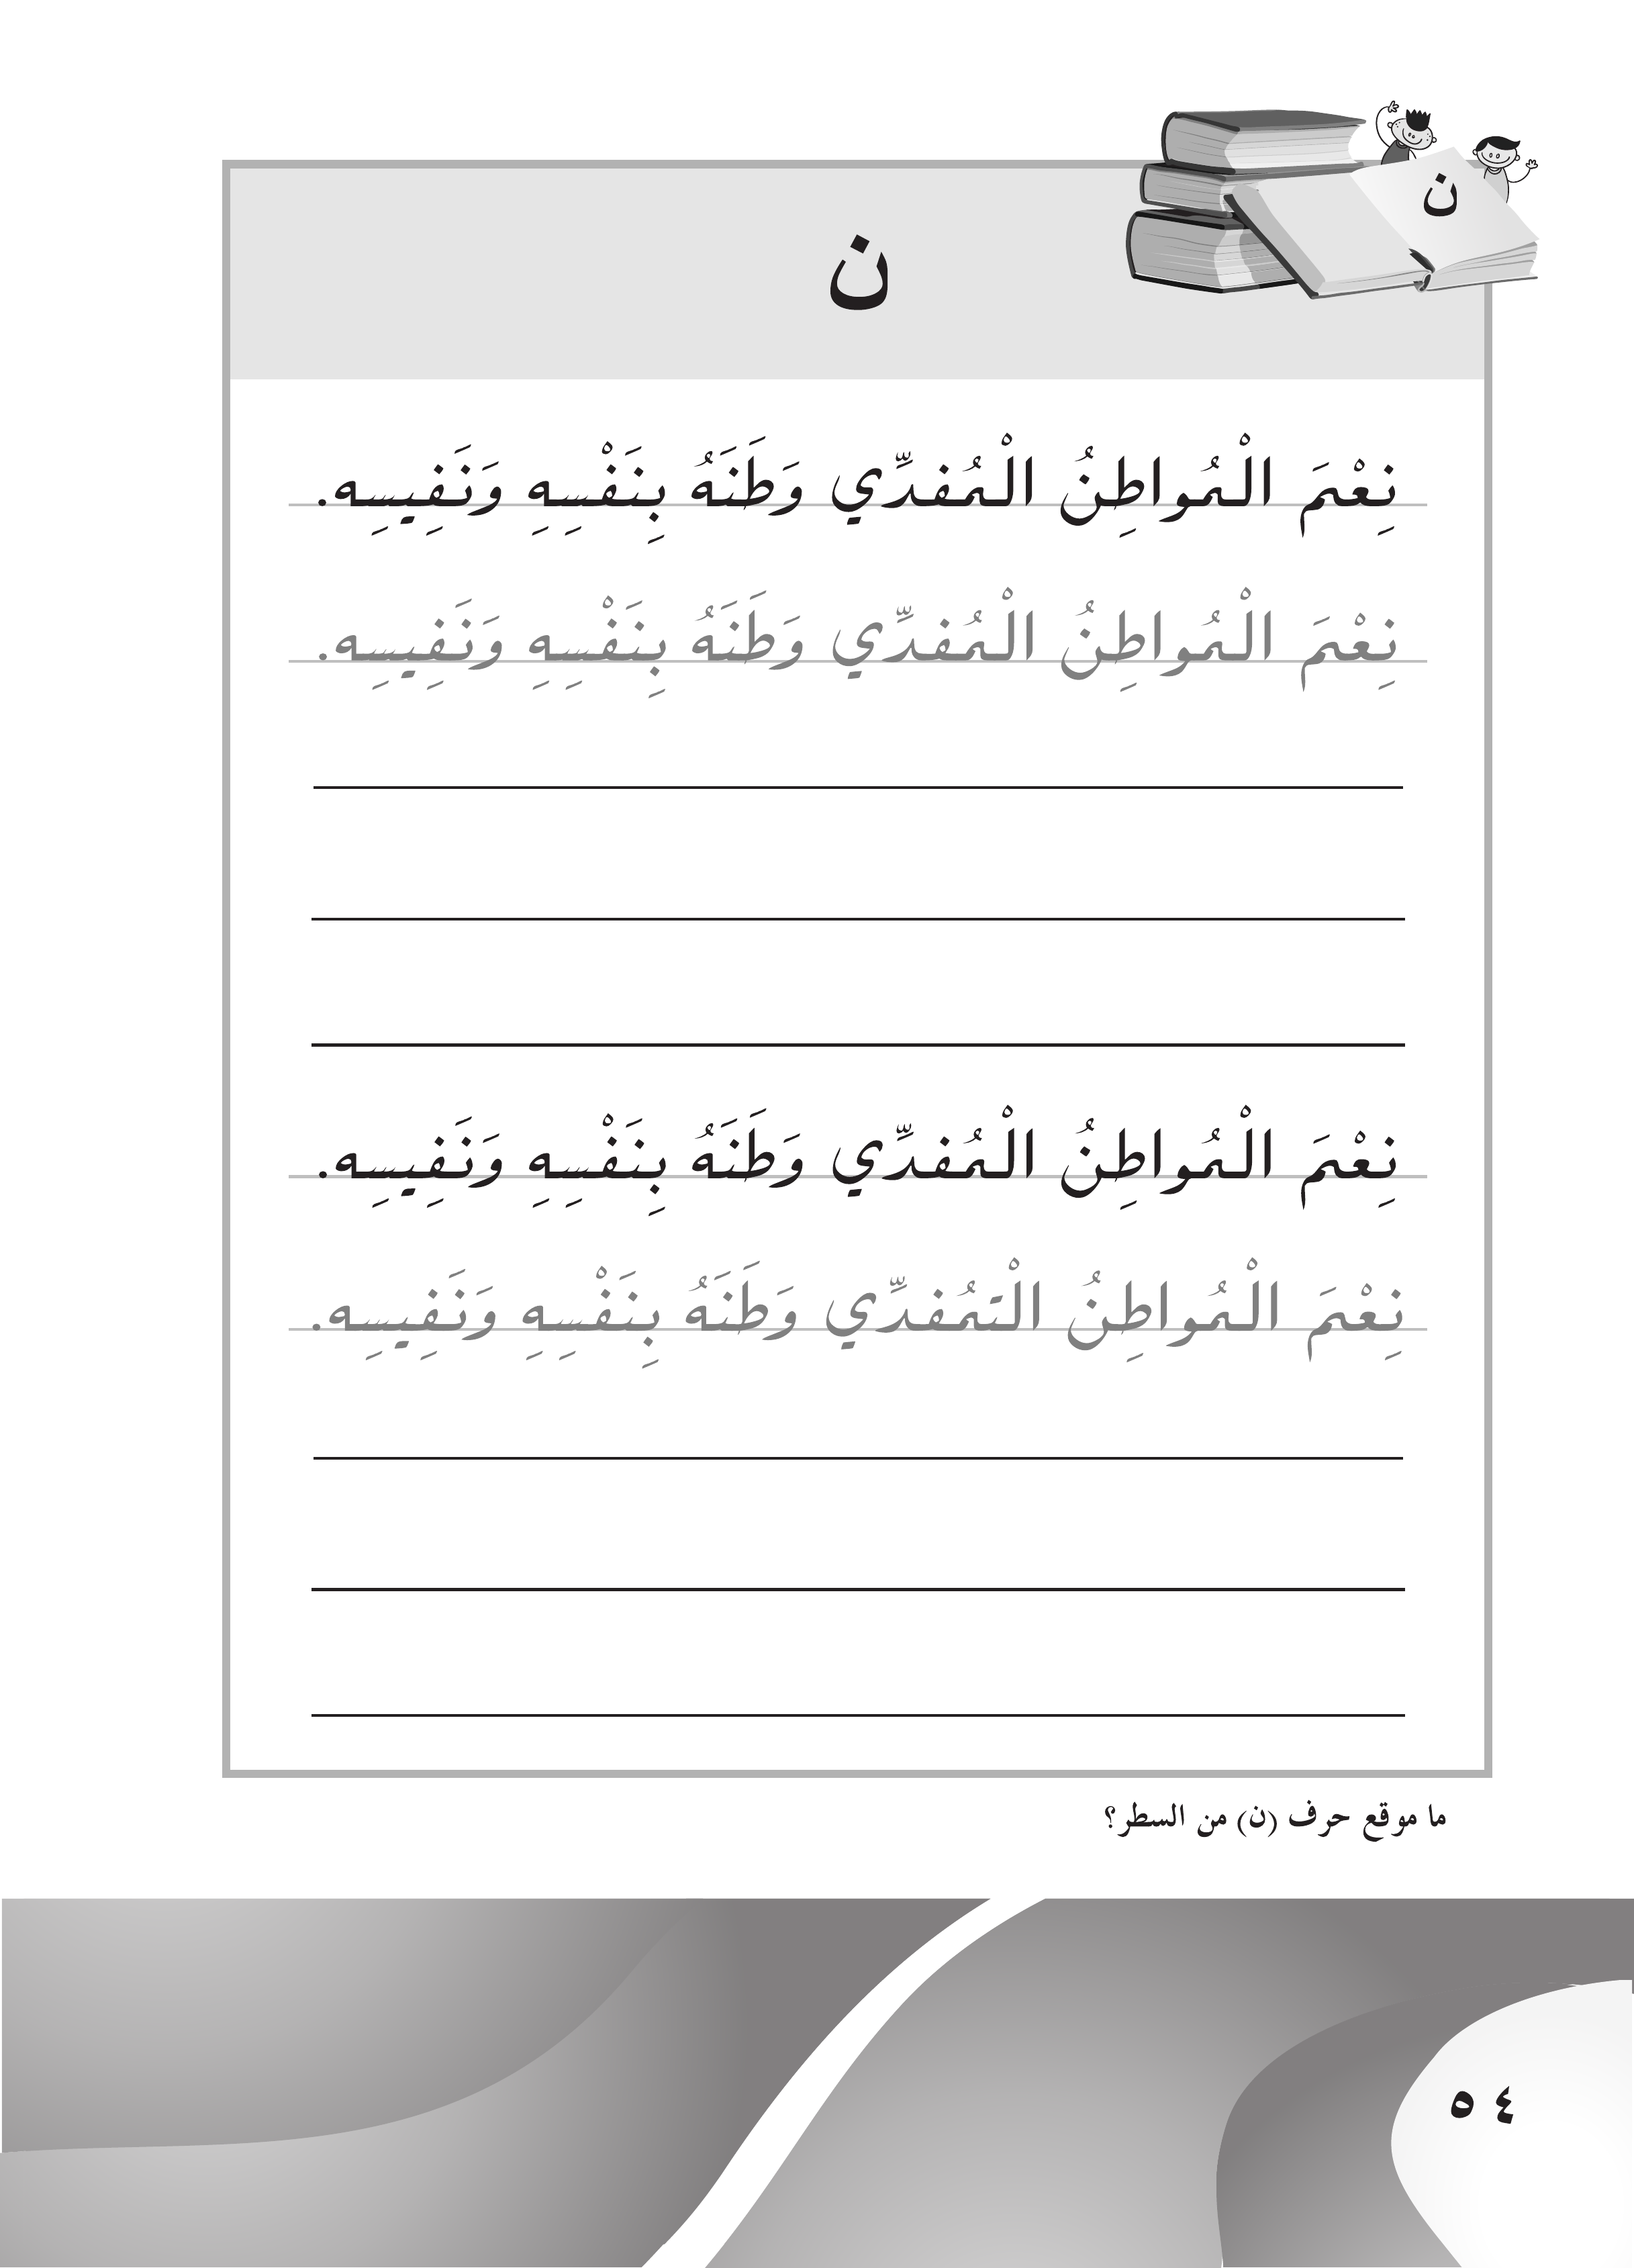 ن
ن
نِعْمَ الْمُواطِنُ الْمُفدِّي وَطَنَهُ بِنَفْسِهِ وَنَفِيسِه.
نِعْمَ الْمُواطِنُ الْمُفدِّي وَطَنَهُ بِنَفْسِهِ وَنَفِيسِه.
نِعْمَ الْمُواطِنُ الْمُفدِّي وَطَنَهُ بِنَفْسِهِ وَنَفِيسِه.
نِعْمَ الْمُواطِنُ الْتمُفدِّي وَطَنَهُ بِنَفْسِهِ وَنَفِيسِه.
ما موقع حرف (ن) من السطر؟
٥٤